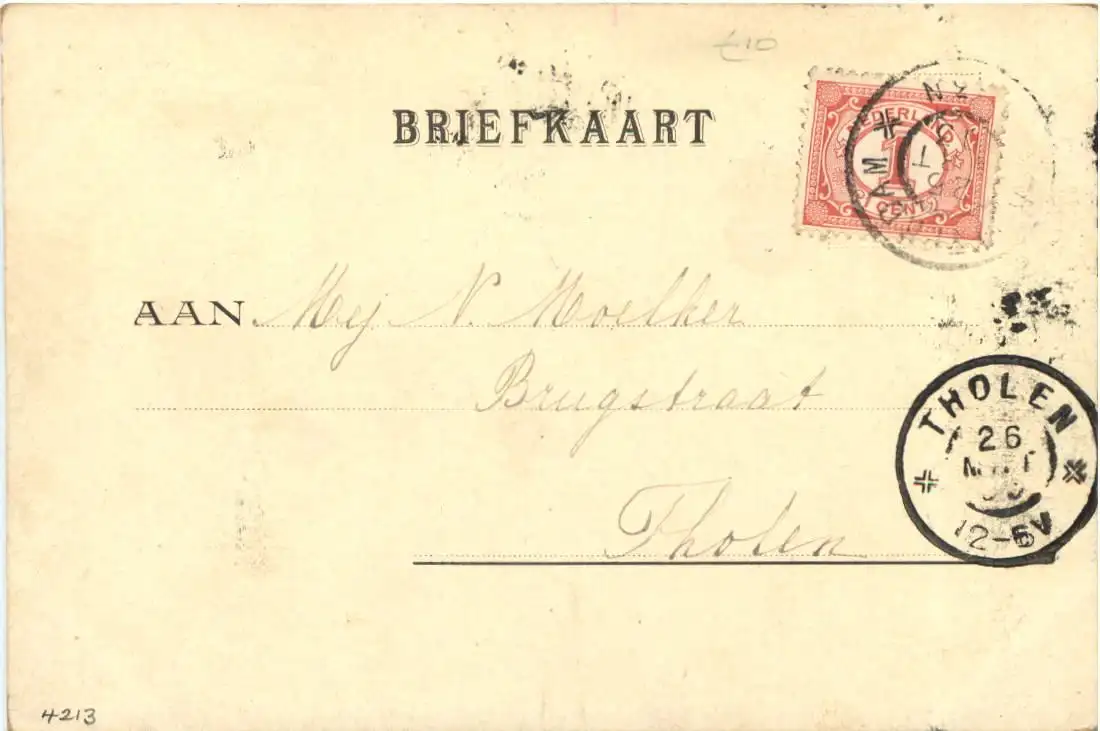 €10
BRIEFKAART
NEDERLAND
1
1 CENT
AM
AAN Mej N. Moelker
Brugstraat
Tholen
THOLEN
26
12-6V
4213